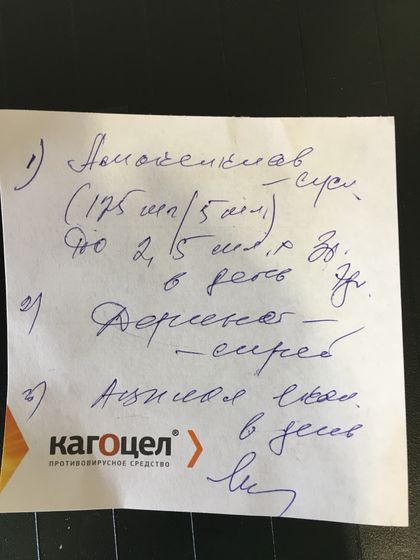 1) Амоксиклав
– сусп.
(125 мг/5 мл)
по 2,5 мл. х 3р.
в день 7д.
2) Деринат –
– спрей
3) Аципол 1кап.
в день
кагоцел®
ПРОТИВОВИРУСНОЕ СРЕДСТВО